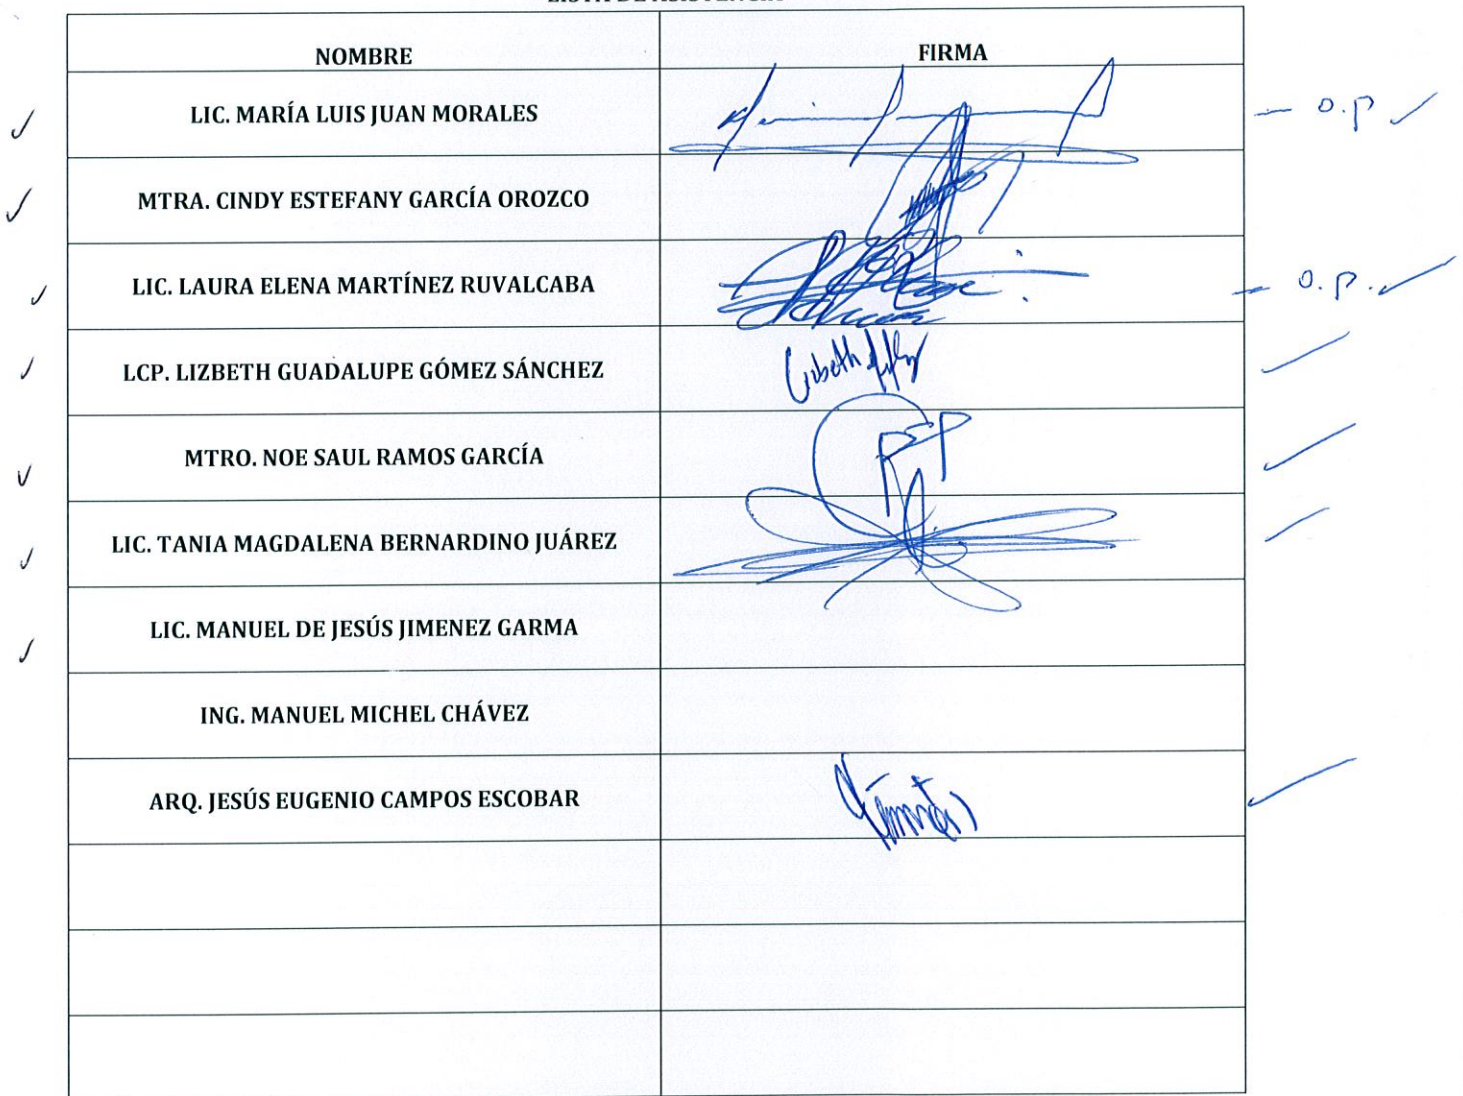 NOMBRE FIRMA
LIC. MARÍA LUIS JUAN MORALES — O.P ✓
MTRA. CINDY ESTEFANY GARCÍA OROZCO
LIC. LAURA ELENA MARTÍNEZ RUVALCABA — O.P. ✓
LCP. LIZBETH GUADALUPE GÓMEZ SÁNCHEZ Lizbeth
MTRO. NOE SAUL RAMOS GARCÍA
LIC. TANIA MAGDALENA BERNARDINO JUÁREZ
LIC. MANUEL DE JESÚS JIMENEZ GARMA
ING. MANUEL MICHEL CHÁVEZ
ARQ. JESÚS EUGENIO CAMPOS ESCOBAR